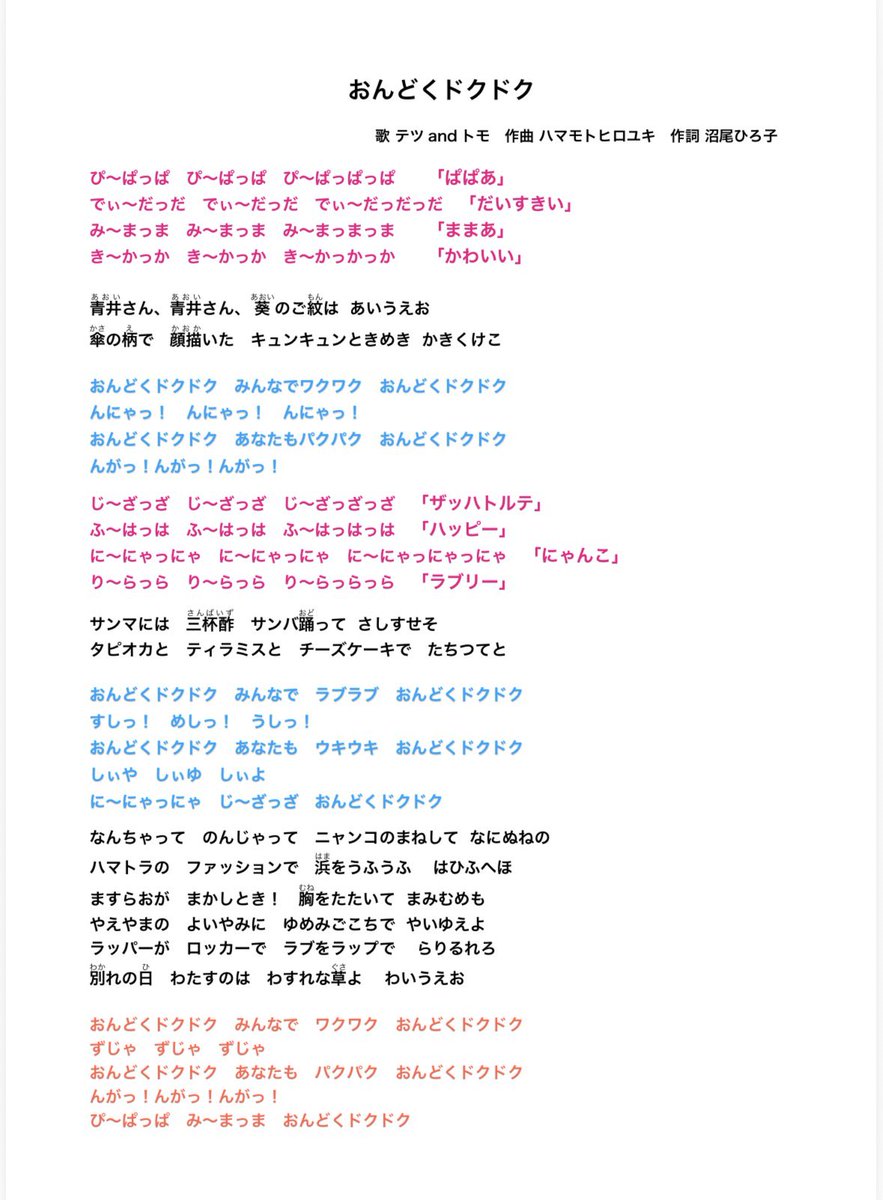 おんどくドクドク
歌 テツ and トモ　作曲 ハマモトヒロユキ　作詞 沼尾ひろ子
ぴ〜ぱっぱ　ぴ〜ぱっぱ　ぴ〜ぱっぱっぱ　「ぱぱあ」
でぃ〜だっだ　でぃ〜だっだ　でぃ〜だっだっだ　「だいすきい」
み〜まっま　み〜まっま　み〜まっまっま　「ままあ」
き〜かっか　き〜かっか　き〜かっかっか　「かわいい」
青井さん、青井さん、葵のご紋は あいうえお
傘の柄で　顔描いた　キュンキュンときめき かきくけこ
おんどくドクドク　みんなでワクワク　おんどくドクドク
んにゃっ！　んにゃっ！　んにゃっ！
おんどくドクドク　あなたもパクパク　おんどくドクドク
んがっ！んがっ！んがっ！
じ〜ざっざ　じ〜ざっざ　じ〜ざっざっざ　「ザッハトルテ」
ふ〜はっは　ふ〜はっは　ふ〜はっはっは　「ハッピー」
に〜にゃっにゃ　に〜にゃっにゃ　に〜にゃっにゃっにゃ　「にゃんこ」
り〜らっら　り〜らっら　り〜らっらっら　「ラブリー」
サンマには　三杯酢　サンバ踊って さしすせそ
タピオカと　ティラミスと　チーズケーキで　たちつてと
おんどくドクドク　みんなで　ラブラブ　おんどくドクドク
すしっ！　めしっ！　うしっ！
おんどくドクドク　あなたも　ウキウキ　おんどくドクドク
しぃや　しぃゆ　しぃよ
に〜にゃっにゃ　じ〜ざっざ　おんどくドクドク
なんちゃって　のんじゃって　ニャンコのまねして なにぬねの
ハマトラの　ファッションで　浜をうふうふ　はひふへほ
ますらおが　まかしとき！　胸をたたいて まみむめも
やえやまの　よいやみに　ゆめみごこちで やいゆえよ
ラッパーが　ロッカーで　ラブをラップで　らりるれろ
別れの日　わたすのは　わすれな草よ　わいうえお
おんどくドクドク　みんなで　ワクワク　おんどくドクドク
ずじゃ　ずじゃ　ずじゃ
おんどくドクドク　あなたも　パクパク　おんどくドクドク
んがっ！んがっ！んがっ！
ぴ〜ぱっぱ　み〜まっま　おんどくドクドク